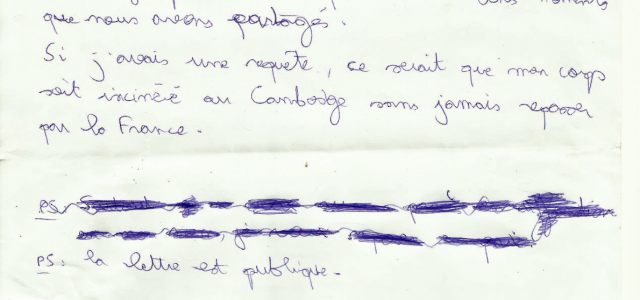 bons moments
que nous avons partagés.
Si j'avais une requête, ce serait que mon corps
soit incinéré au Cambodge sans jamais repasser
par la France.
PS:
PS: la lettre est publique.